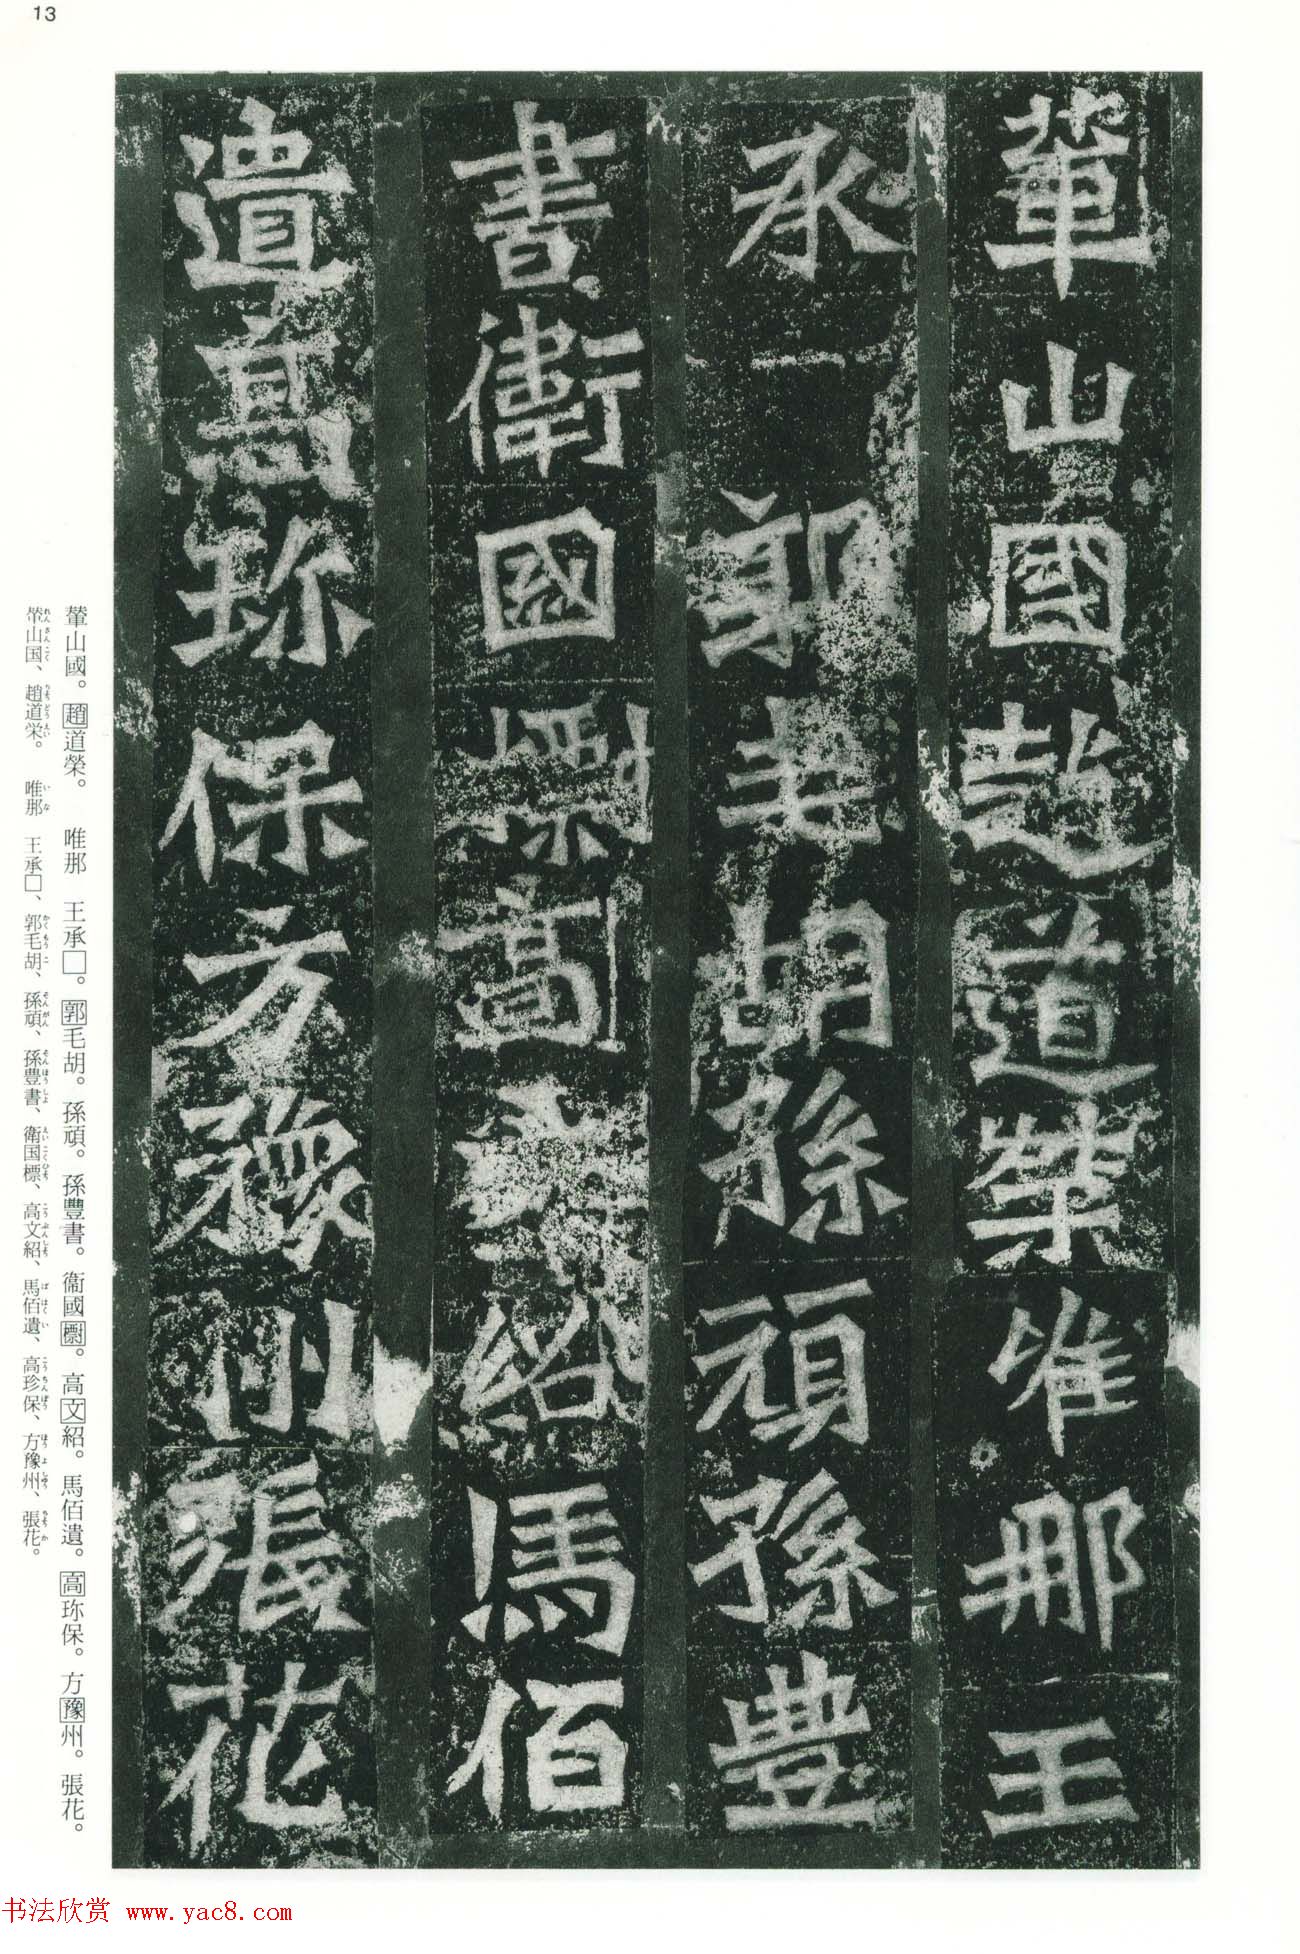 13
輦山國趙道榮唯那王
承郭毛胡孫頑孫豊
書衛國摽高文紹馬佰
遺高珎保方豫州張花
輦山國。趙道榮。　唯那　王承□。郭毛胡。孫頑。孫豐書。衞國㯹。高文紹。馬佰遺。高珎保。方豫州。張花。
輦山国、趙道栄。　唯那　王承□、郭毛胡、孫頑、孫豊書、衛国標、高文紹、馬佰遺、高珍保、方豫州、張花。
书法欣赏 www.yac8.com